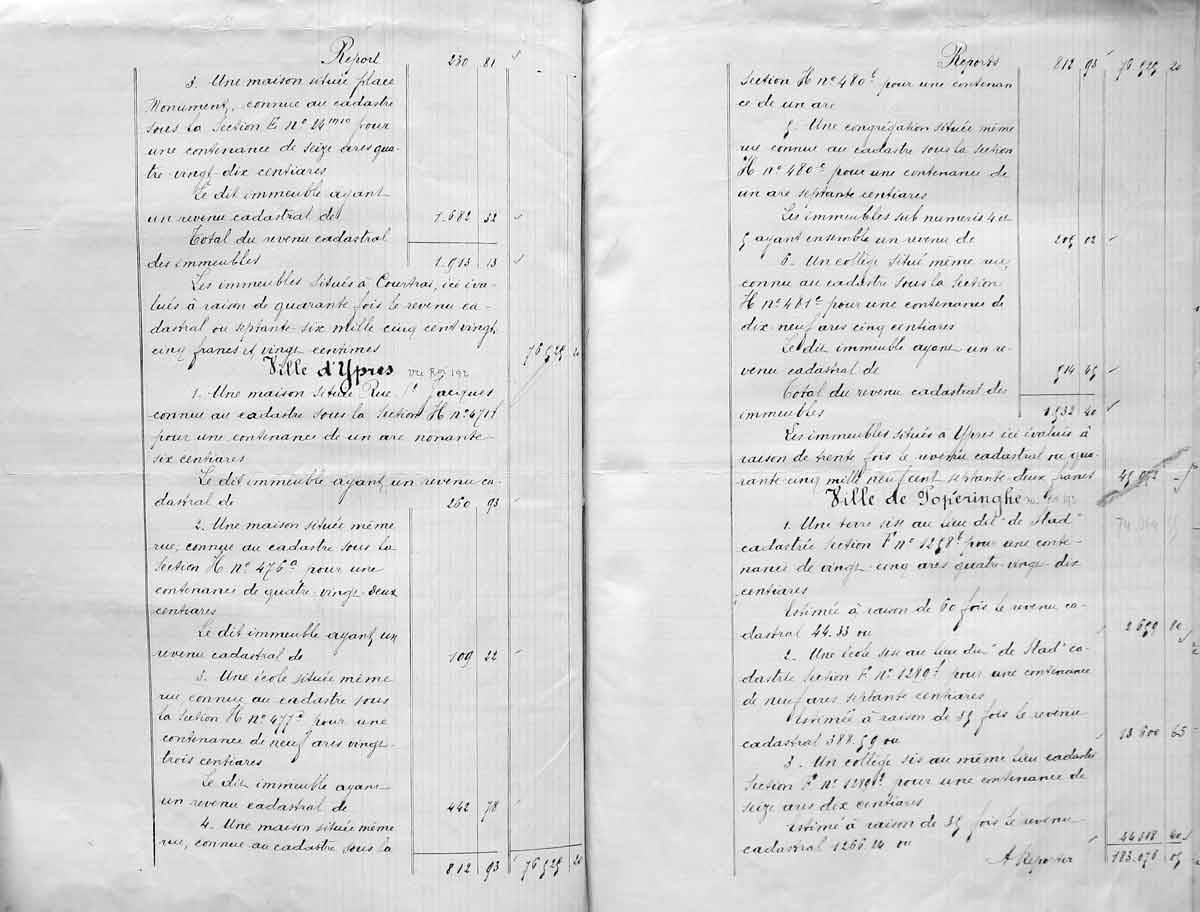 Report 230 81
3. Une maison située place
Monument, connue au cadastre
sous la Section E nº 24 pour
une contenance de seize ares qua-
tre-vingt-dix centiares
Le dit immeuble ayant
un revenu cadastral de 1.682 32
Total du revenu cadastral
des immeubles 1.913 13
Les immeubles situés à Courtrai, ici éva-
lués à raison de quarante fois le revenu ca-
dastral ou septante-six mille cinq cent vingt
cinq francs et vingt centimes 76 525 20
Ville d'Ypres
1. Une maison située Rue St Jacques
connue au cadastre sous la section H nº 471
pour une contenance de un are nonante-
six centiares
Le dit immeuble ayant un revenu ca-
dastral de 260 93
2. Une maison située même
rue, connue au cadastre sous la
Section H. nº 476a pour une
contenance de quatre-vingt-deux
centiares
Le dit immeuble ayant un
revenu cadastral de 109 22
3. Une école située même
rue, connue au cadastre sous
la Section H nº 477 pour une
contenance de neuf ares vingt-
trois centiares
Le dit immeuble ayant
un revenu cadastral de 442 78
4. Une maison située même
rue, connue au cadastre sous la
812 93 76 525 20
Reports 812 93 76 525 20
Section H nº 480 pour une contenan
ce de un are
5. Une congrégation située même
rue connue au cadastre sous la section
H nº 480c pour une contenance de
un are septante centiares
Les immeubles sub numeris 4 et
5 ayant ensemble un revenu de 205 02
6. Un collège situé même rue,
connu au cadastre sous la Section
H nº 481c pour une contenance de
dix-neuf ares cinq centiares
Le dit immeuble ayant un re-
venu cadastral de 514 45
Total du revenu cadastral des
immeubles 1.532 40
Les immeubles situés à Ypres ici évalués à
raison de trente fois le revenu cadastral ou qua-
rante-cinq mille neuf cent septante-deux francs 45 972 -
Ville de Poperinghe
1. Une terre sise au lieu dit "de Stad"
cadastrée section F nº 1258 pour une conte-
nance de vingt-cinq ares quatre-vingt-dix
centiares
Estimée à raison de 60 fois le revenu ca-
dastral 44.33 ou 2 659 80
2. Une école sise au lieu dit "de Stad" ca-
dastrée section F. nº 1280 pour une contenance
de neuf ares septante centiares
Estimée à raison de 35 fois le revenu
cadastral 388.59 ou 13 600 65
3. Un collège sis au même lieu cadastré
Section F nº 1280 pour une contenance de
seize ares dix centiares
Estimé à raison de 35 fois le revenu
cadastral 1266.24 ou 44 318 40
A Reporter 183.076 05